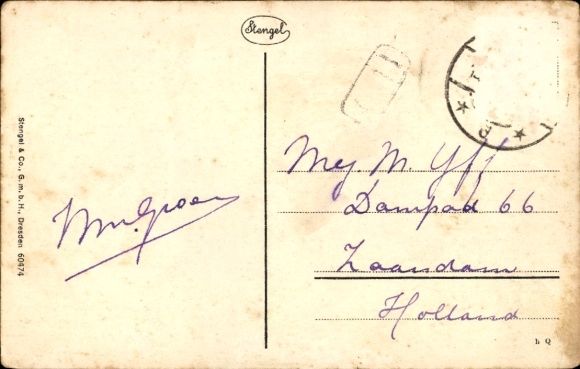 Stengel
Stengel & Co., G.m.b.H., Dresden 60474
Mej. M. Yff
Dampad 66
Zaandam
Holland
h Q